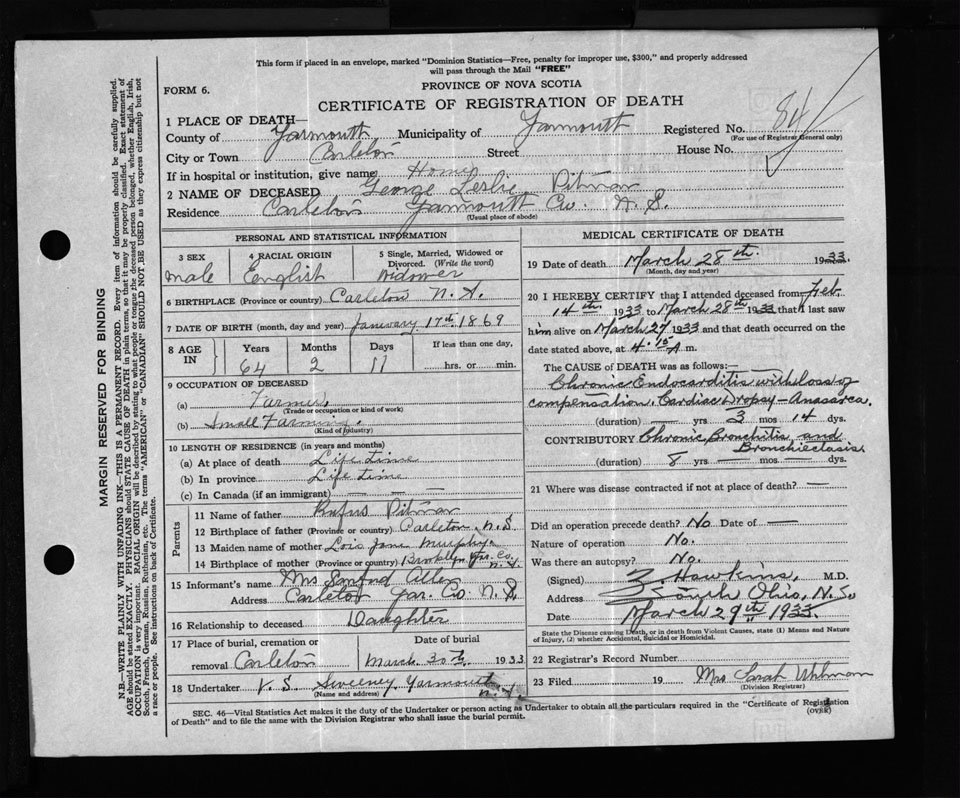 This form if placed in an envelope, marked "Dominion Statistics—Free, penalty for improper use, $300," and properly addressed
will pass through the Mail "FREE"
FORM 6.
PROVINCE OF NOVA SCOTIA
CERTIFICATE OF REGISTRATION OF DEATH
84
1 PLACE OF DEATH—
County of Yarmouth, Municipality of Yarmouth Registered No.
(For use of Registrar General only)
City or Town Carleton Street House No.
If in hospital or institution, give name Home
2 NAME OF DECEASED George Leslie Pitman
Residence Carleton Yarmouth Co. N.S.
(Usual place of abode)
PERSONAL AND STATISTICAL INFORMATION
3 SEX 4 RACIAL ORIGIN 5 Single, Married, Widowed or
Divorced. (Write the word)
male English Widower
6 BIRTHPLACE (Province or country) Carleton N.S.
7 DATE OF BIRTH (month, day and year) January 17th 1869
8 AGE IN Years Months Days If less than one day,
64 2 11 hrs. or min.
9 OCCUPATION OF DECEASED
(a) Farmer
(Trade or occupation or kind of work)
(b) Small Farming.
(Kind of Industry)
10 LENGTH OF RESIDENCE (in years and months)
(a) At place of death Life time
(b) In province Life time
(c) In Canada (if an immigrant) — — —
Parents
11 Name of father Rufus Pitman
12 Birthplace of father (Province or country) Carleton N.S
13 Maiden name of mother Lois Jane Murphy
14 Birthplace of mother (Province or country) Brooklyn Yar. Co. N.S.
15 Informant's name Mrs Sanford Allen
Address Carleton Yar. Co. N.S.
16 Relationship to deceased Daughter
17 Place of burial, cremation or Date of burial
removal Carleton March 30th 1933
18 Undertaker V. S. Sweeney, Yarmouth N.S.
(Name and address)
MEDICAL CERTIFICATE OF DEATH
19 Date of death March 28th 1933
(Month, day and year)
20 I HEREBY CERTIFY that I attended deceased from Feb.
14th 1933 to March 28th 1933 that I last saw
him alive on March 27 1933 and that death occurred on the
date stated above, at 4.15 A m.
The CAUSE OF DEATH was as follows:—
Chronic Endocarditis with loss of
compensation. Cardiac Dropsy - Anasarca.
(duration) — yrs 3 mos 14 dys.
CONTRIBUTORY Chronic Bronchitis and
Bronchiectasis
(duration) 8 yrs — mos — dys.
21 Where was disease contracted if not at place of death? —
Did an operation precede death? No Date of —
Nature of operation No.
Was there an autopsy? No.
(Signed) Z. Hawkins, M.D.
Address South Ohio, N.S.
Date March 29th 1933
State the Disease causing Death, or in death from Violent Causes, state (1) Means and Nature
of Injury, (2) whether Accidental, Suicidal or Homicidal.
22 Registrar's Record Number
23 Filed 19 Mrs Sarah Uhlman
(Division Registrar)
SEC. 46—Vital Statistics Act makes it the duty of the Undertaker or person acting as Undertaker to obtain all the particulars required in the "Certificate of Registration
of Death" and to file the same with the Division Registrar who shall issue the burial permit.
(OVER)
MARGIN RESERVED FOR BINDING
N.B.—WRITE PLAINLY WITH UNFADING INK—THIS IS A PERMANENT RECORD. Every item of information should be carefully supplied.
AGE should be stated EXACTLY. PHYSICIANS should STATE CAUSE OF DEATH in plain terms, so that it may be properly classified. Exact statement of
OCCUPATION is very important. RACIAL ORIGIN will be described by stating to what people or tongue the deceased person belonged, whether English, Irish,
Scotch, French, German, Russian, Ruthenian, etc. The terms "AMERICAN" or "CANADIAN" SHOULD NOT BE USED as they express citizenship but not
a race or people. See instructions on back of Certificate.